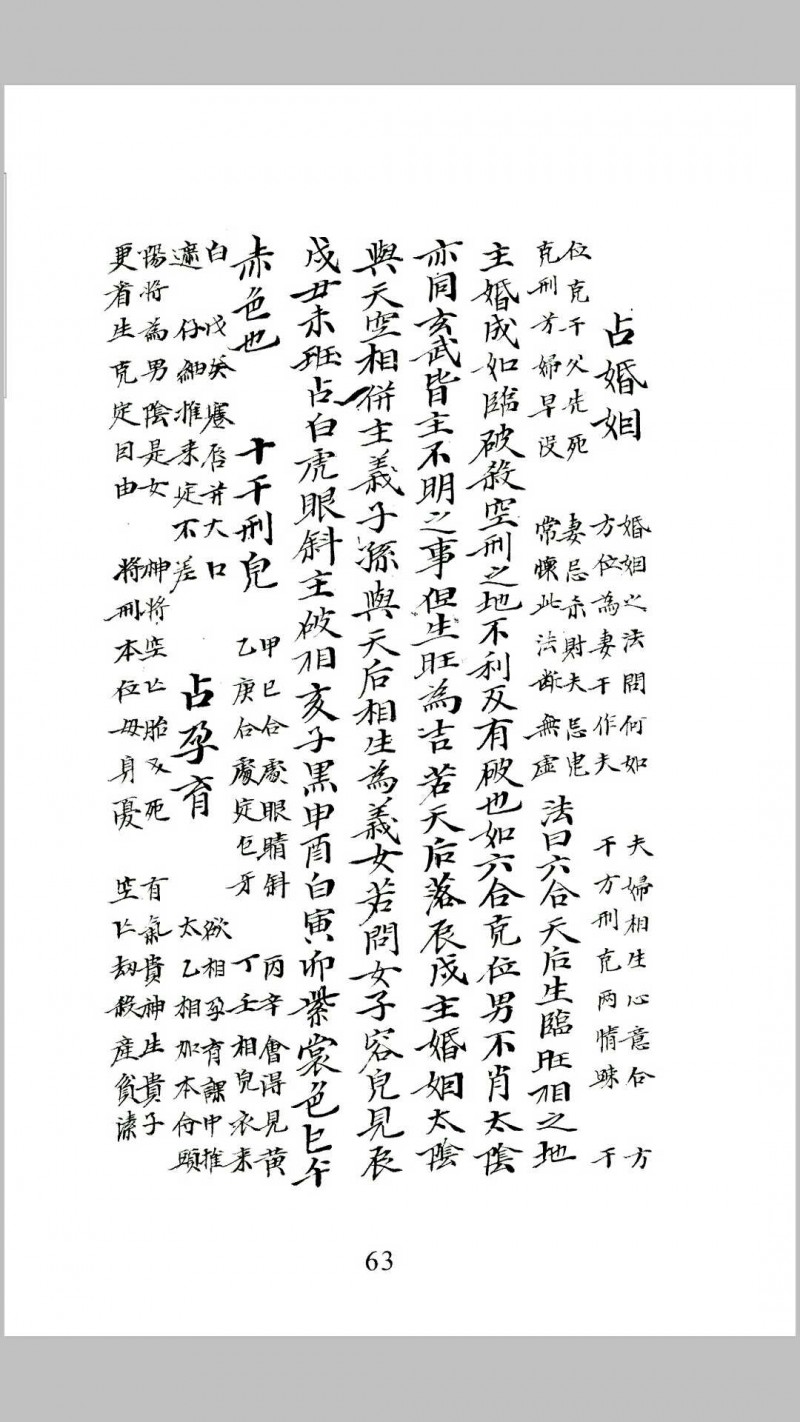 占婚姻 婚姻之法問何如 方位為妻干作夫 夫婦相生心意合 干方刑克两情疎 方 干
位克干父先死 克刑方婦早没 妻忌杀財夫忌鬼 常懐此法断無虚 法曰六合天后生臨旺相之地
主婚成如臨破殺空刑之地不利及有破也如六合克位男不肖太陰
亦同玄武皆主不明之事但生旺為吉若天后落辰戌主婚姻太陰
與天空相併主義子孫與天后相生為義女若問女子容皃見辰
戌丑未班占白虎眼斜主破相亥子黑申酉白寅卯紫裳色巳午
赤色也 十干刑皃 甲己合處眼睛斜 乙庚合處定包牙 丙辛會得見黄 丁壬相皃衣来
白 遮 戊癸蹇唇并大口 仔細推来定不差 占孕育 欲相孕育課中推 太乙相加本位顕
陽将為男陰是女 更省生克定因由 神将空亡胎又死 将刑本位母身憂 有氣貴神生貴子 空亡劫殺産貧
63